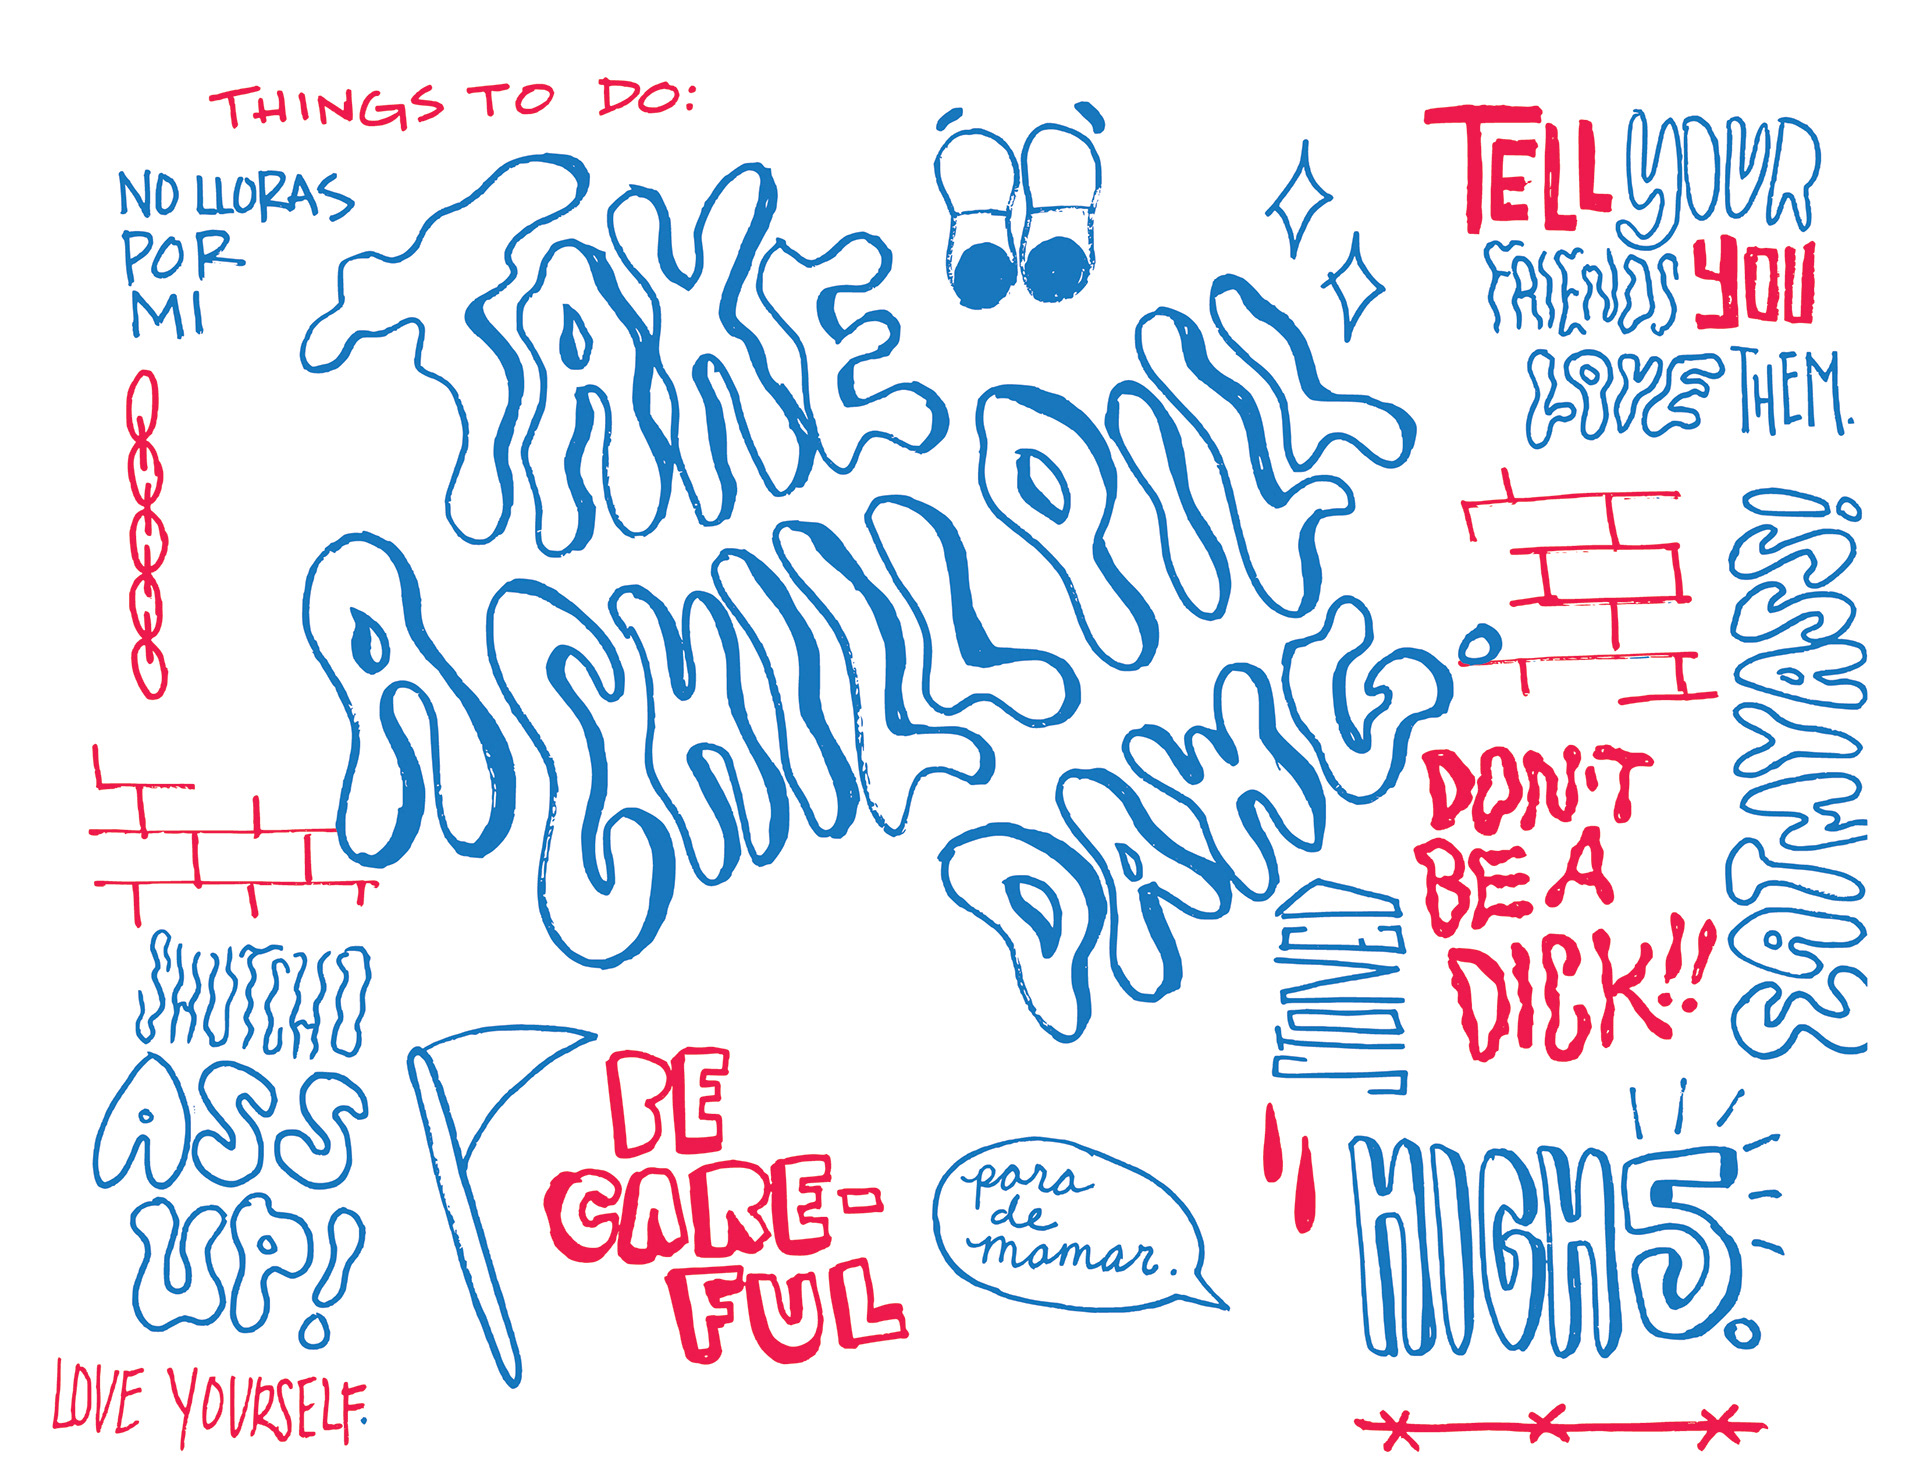 THINGS TO DO:
NO LLORAS
POR
MI
TAKE
A CHILL PILL
DAWG.
TELL YOUR
FRIENDS YOU
LOVE THEM.
EAT MY ASS!
DON'T
BE A
DICK!!
STONED
SHUTCHO
ASS
UP!
LOVE YOURSELF.
BE
CARE-
FUL
para
de
mamar.
HIGH 5.